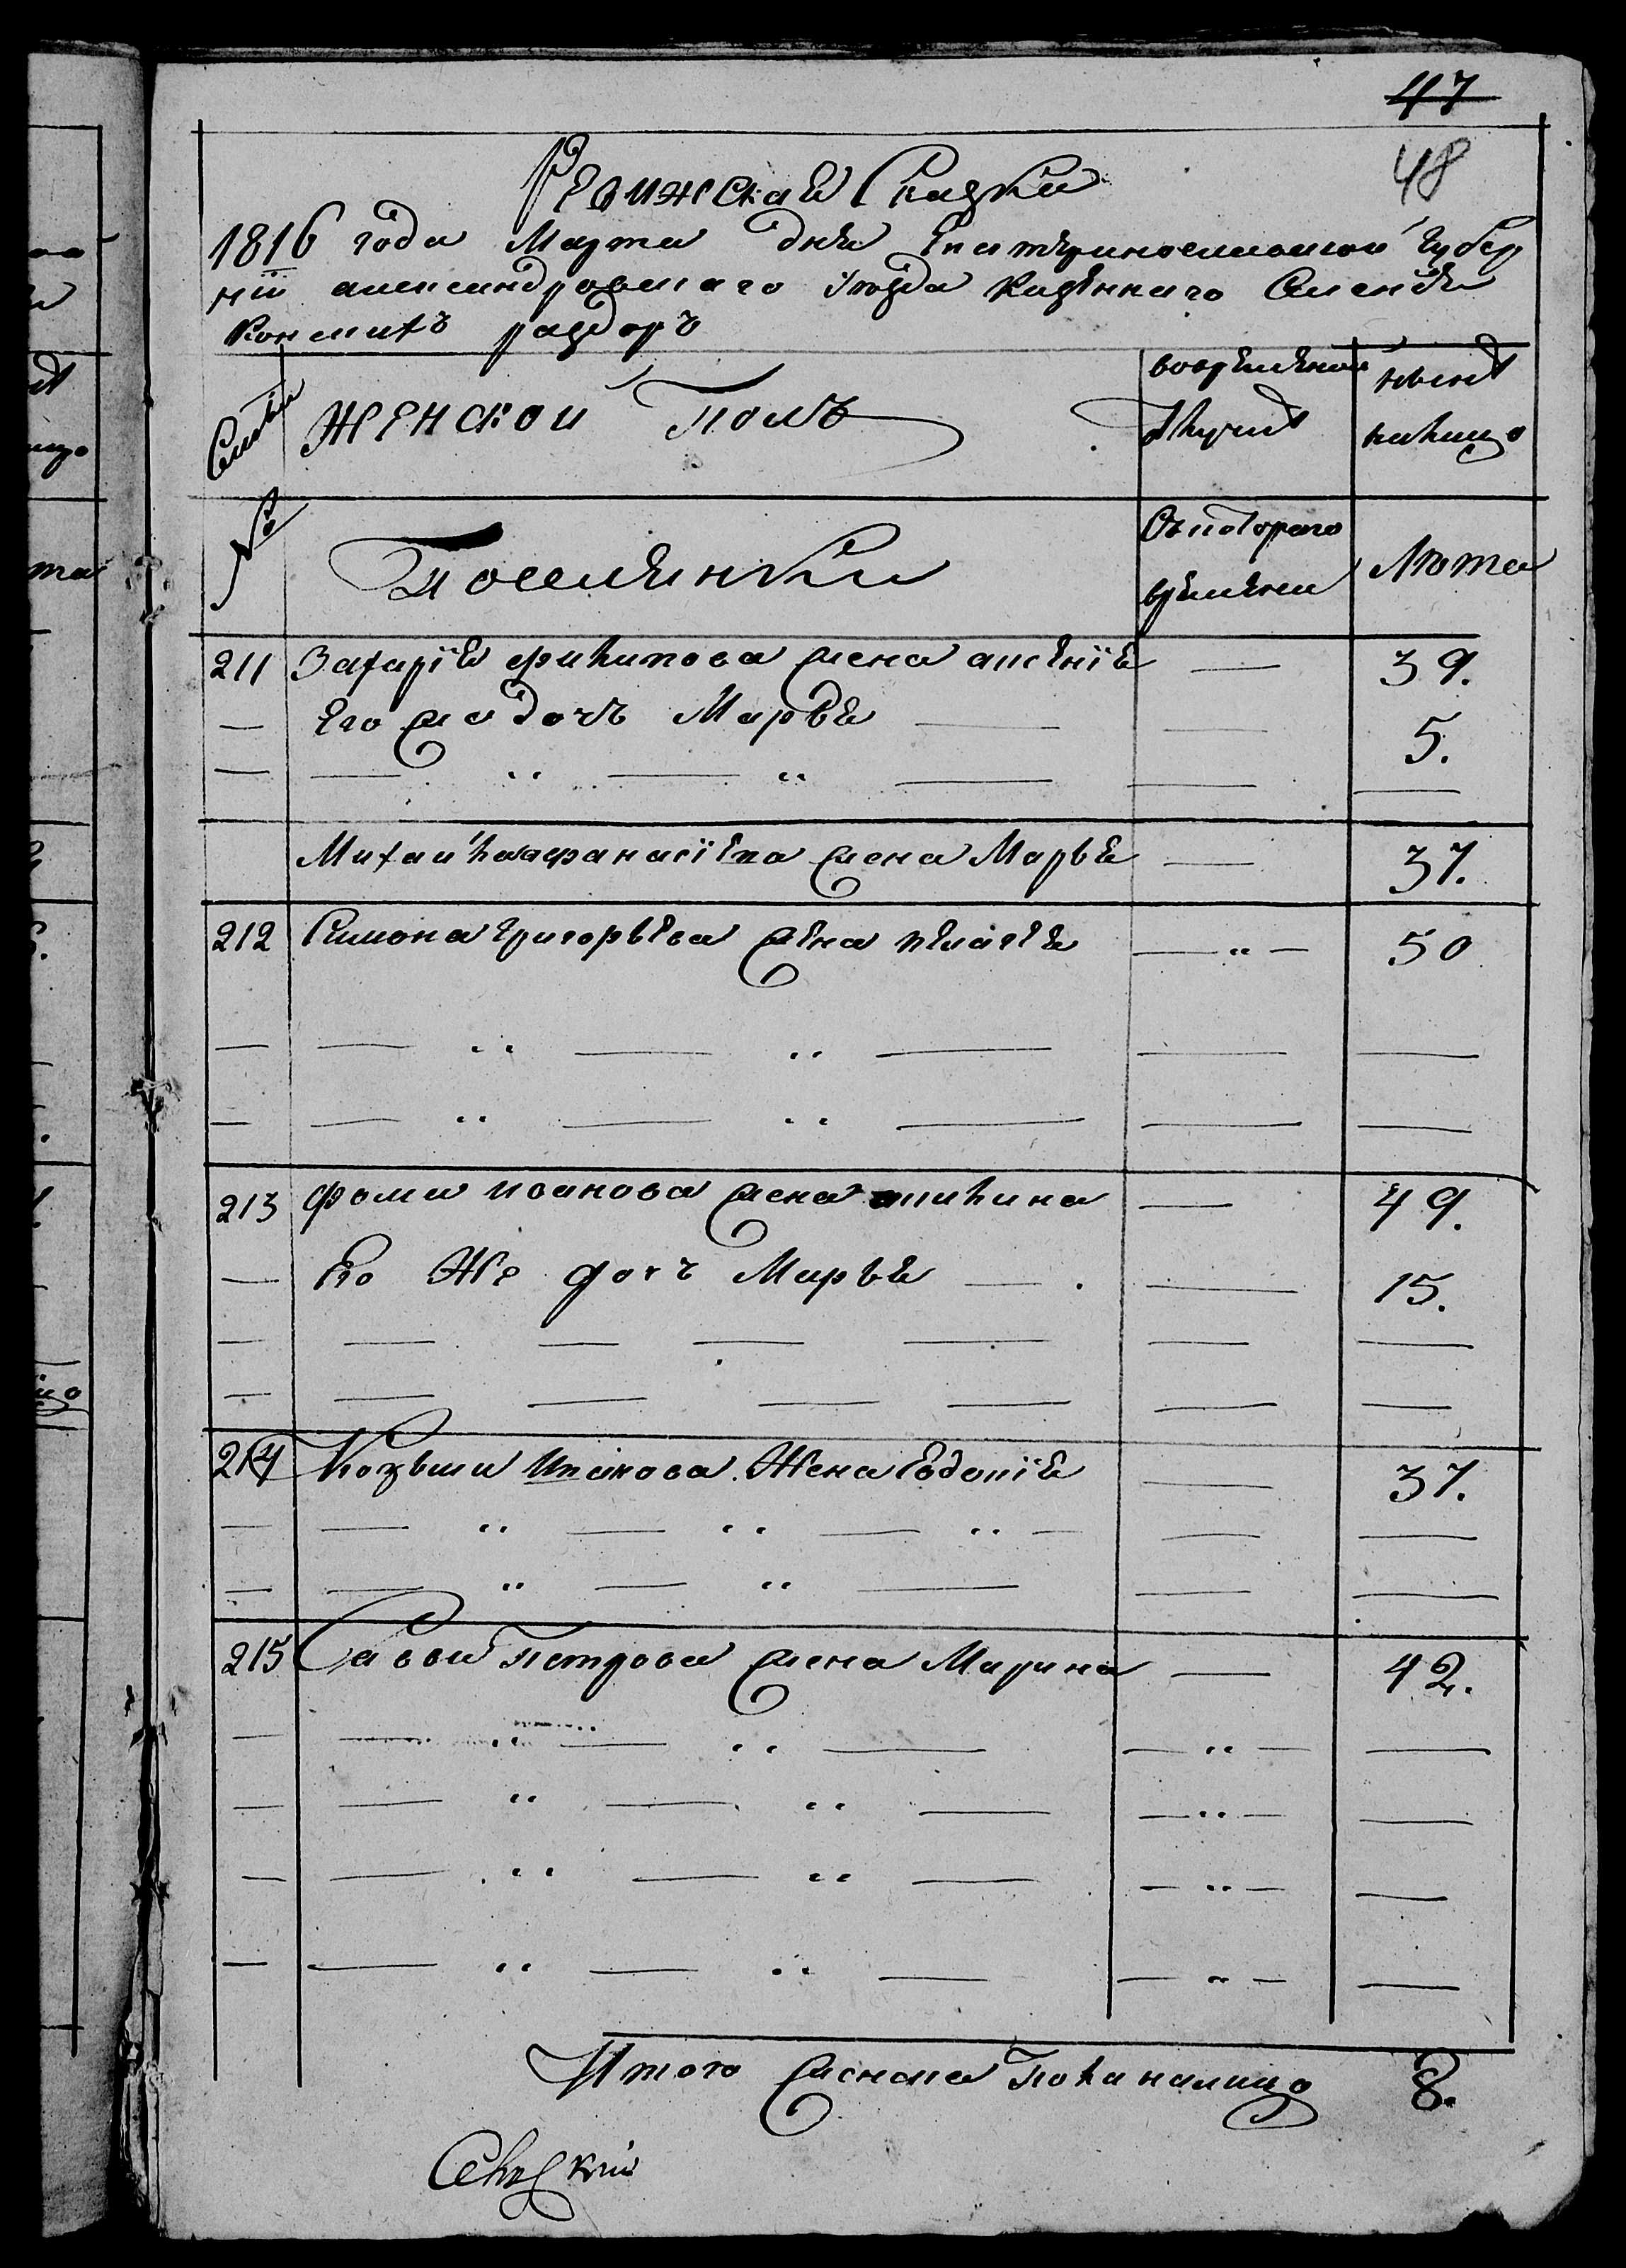 47
48
Ревижская Сказка
1816 года Марта дня Екатериносланской Губер
нїи александровскаго уѣзда казеннаго Селенія
Конскихъ раздоръ
Семьи
Женской Полъ
вовременной
Отлучкѣ
нынѣ
налицо
№
Поселянки
Съкотораго
времени
Лѣта
211 Захарїя филипова жена аксенїя — 39.
— Его же дочь Марья — — 5.
Михайла афанасїева жена Марья — 37.
212 Симона григорьева жена пелагея — 50
213 фомы иванова жена акилина — 49.
— Его Же дочь Марья — — 15.
214 Козьмы Исакова Жена Евдокїя — 37.
215 Саввы Петрова жена Марина — 42.
Итого женска Пола налицо 8.